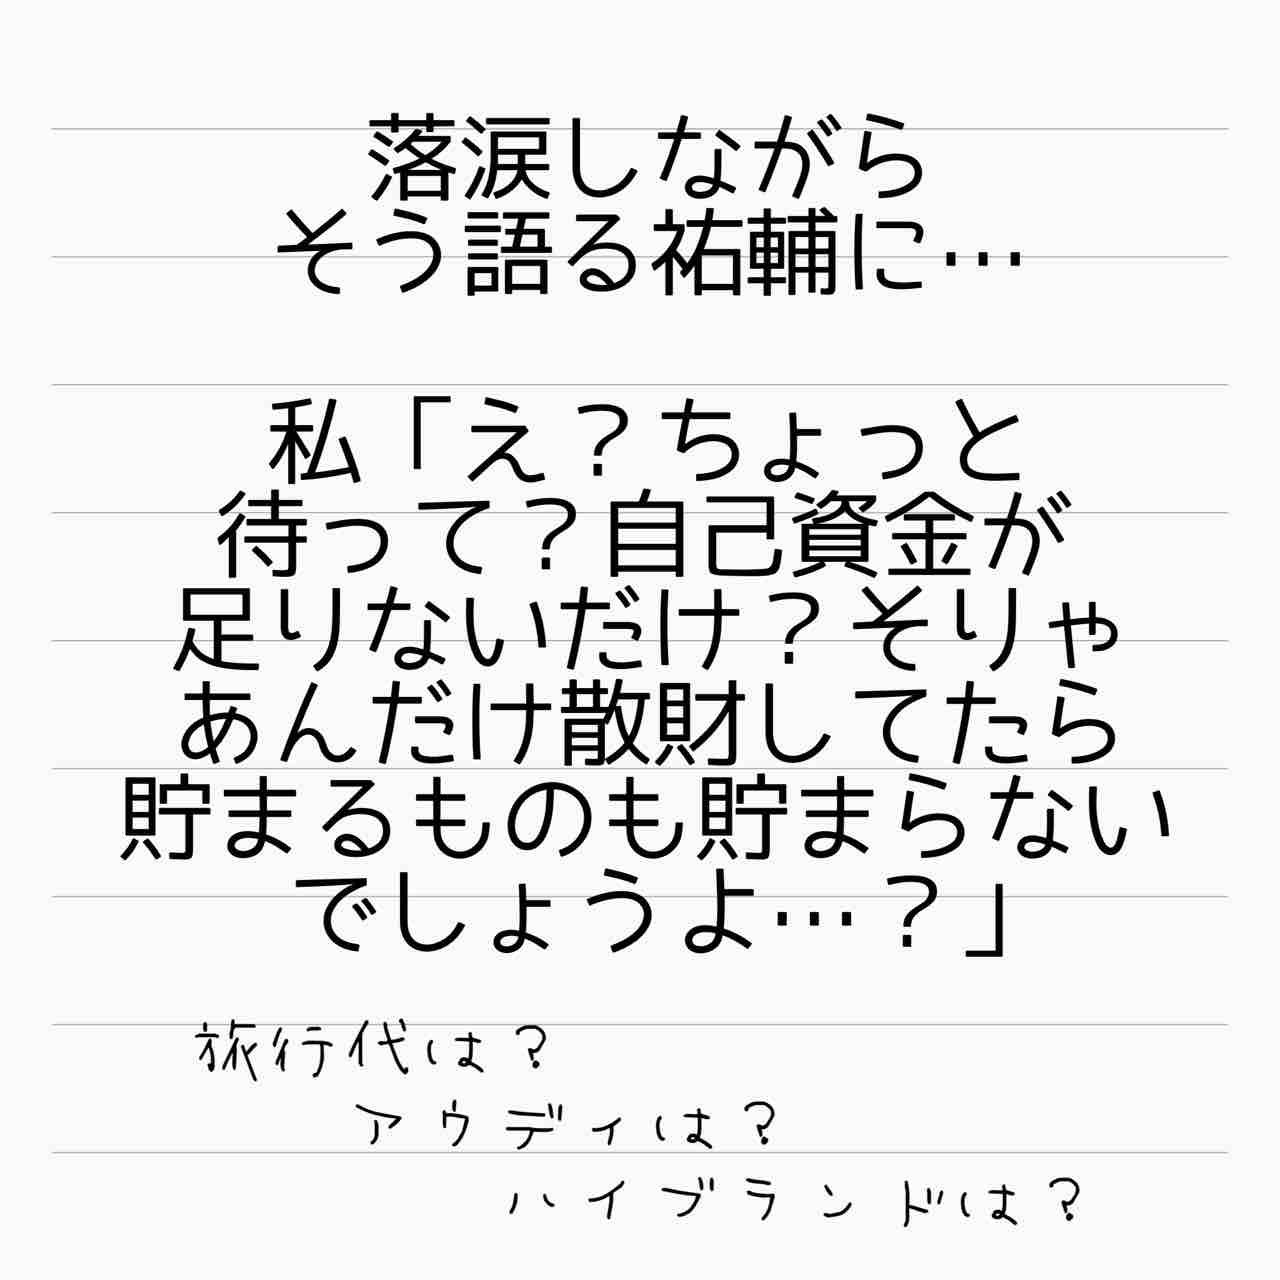 落涙しながら
そう語る祐輔に…
私「え？ちょっと
待って？自己資金が
足りないだけ？そりゃ
あんだけ散財してたら
貯まるものも貯まらない
でしょうよ…？」
旅行代は？
アウディは？
ハイブランドは？